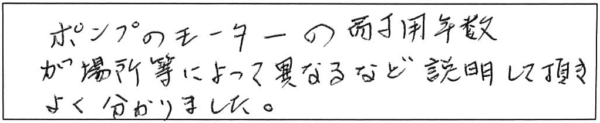 ポンプのモーターの耐用年数
が場所等によって異なるなど説明して頂き
よく分かりました。